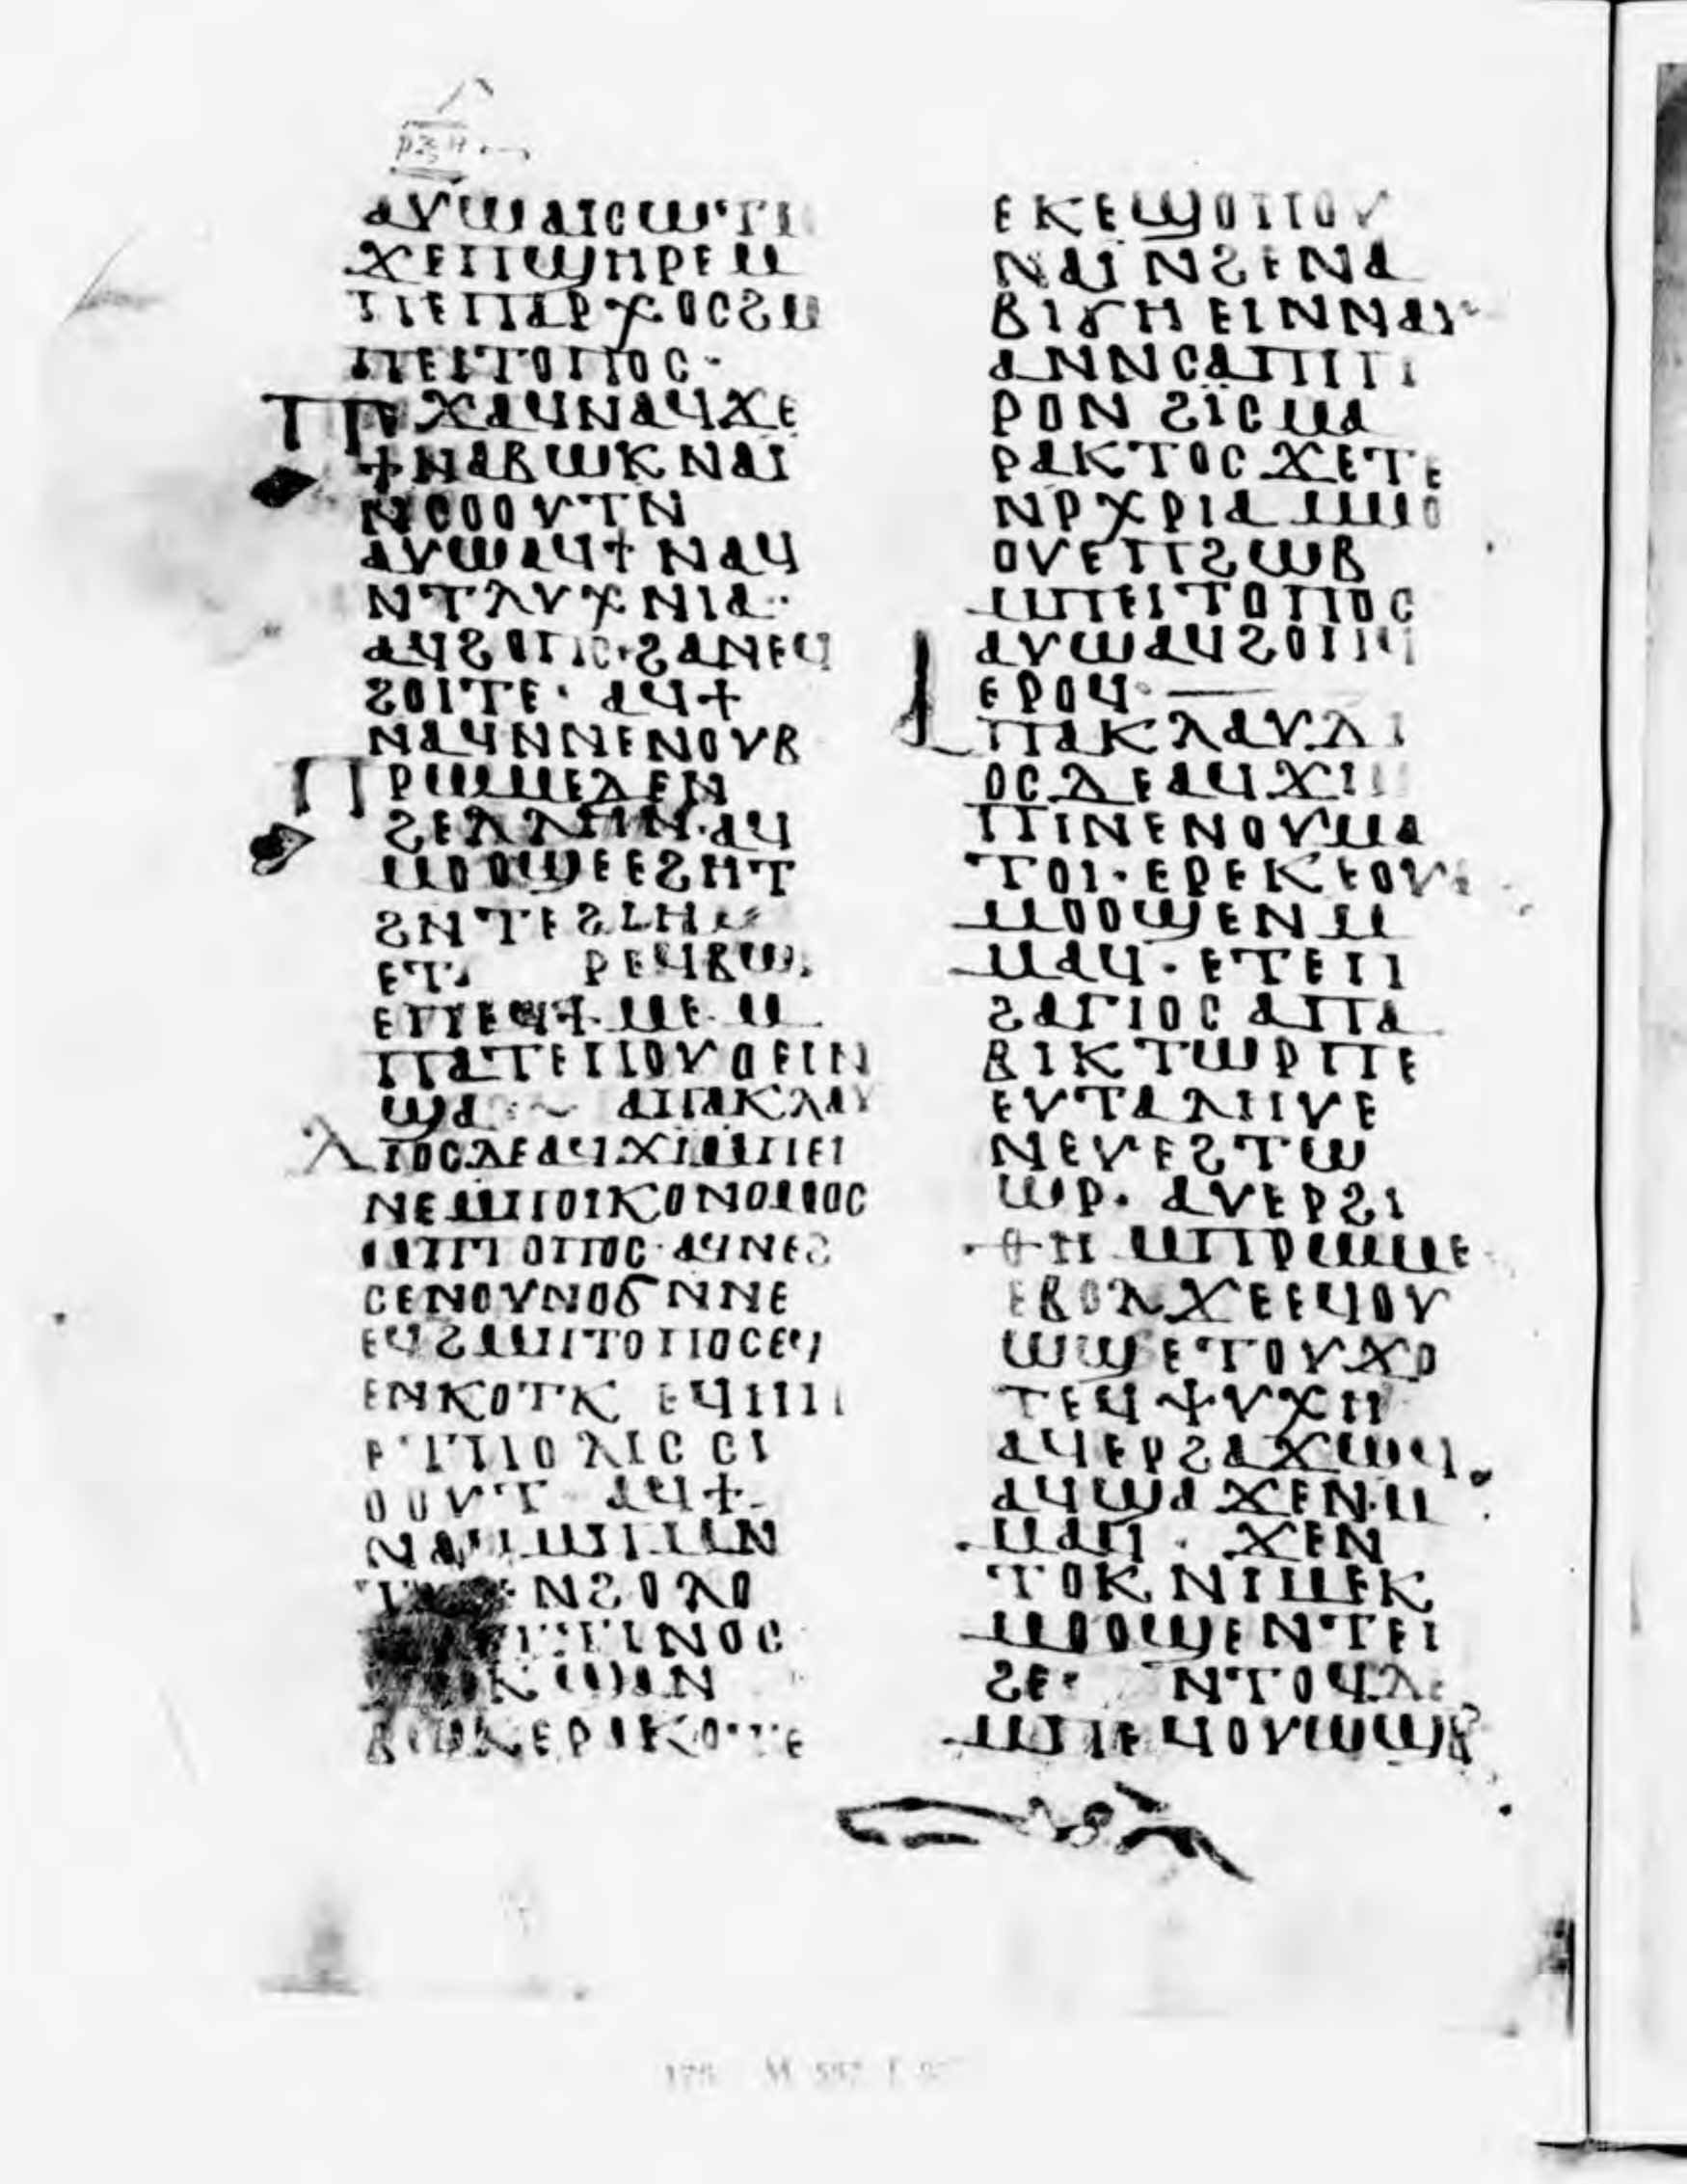 ⲁⲩⲱⲁⲓⲥⲱⲧⲙ
ϫⲉⲡϣⲏⲣⲉⲙ
ⲡⲉⲡⲁⲣⲭⲟⲥϩⲙ
ⲡⲉⲓⲧⲟⲡⲟⲥ·
ⲡⲉϫⲁϥⲛⲁϥϫⲉ
ϯⲛⲁⲃⲱⲕⲛⲁⲓ
ⲛⲥⲟⲟⲩⲧⲛ
ⲁⲩⲱⲁϥϯⲛⲁϥ
ⲛⲧⲗⲩⲭⲛⲓⲁ··
ⲁϥϩⲟⲡⲥ·ϩⲁⲛⲉϥ
ϩⲟⲓⲧⲉ· ⲁϥϯ
ⲛⲁϥⲛⲛⲉⲛⲟⲩⲃ
ⲡⲣⲱⲙⲉⲇⲉⲛ
ϩⲉⲗⲗⲏⲛ·ⲁϥ
ⲙⲟⲟϣⲉⲉϩⲏⲧ
ϩⲛⲧⲉϩⲓⲏ
ⲣⲉϥⲃⲱ
ⲉⲡⲉϥϯⲙⲉ·ⲙ
ⲡⲁⲧⲉⲡⲟⲩⲟⲉⲓⲛ
ϣⲁ ⲁⲡⲁⲕⲗⲁⲩ
ⲇⲓⲟⲥⲇⲉⲁϥϫⲓⲙⲡⲉⲓ
ⲛⲉⲙⲡⲟⲓⲕⲟⲛⲟⲙⲟⲥ
ⲙⲡⲧⲟⲡⲟⲥ·ⲁϥⲛⲉϩ
ⲥⲉⲛⲟⲩⲛⲟϭⲛⲛⲉ
ⲉϥϩⲙⲡⲧⲟⲡⲟⲥⲉϥ
ⲉⲛⲕⲟⲧⲕ
ⲧⲡⲟⲗⲓⲥ ⲥⲓ
ⲟⲟⲩⲧ ⲁϥϯ
ⲛⲁϥⲙⲡⲙⲛ
ⲛϩⲟⲗⲟ
ⲓⲛⲟⲥ
ⲃⲱⲕⲉⲣⲁⲕⲟⲧⲉ
ⲉⲕⲉϣⲟⲡⲟⲩ
ⲛⲁⲓⲛϩⲉⲛⲁ
ⲃⲓϭⲏⲉⲓⲛⲛⲁⲩ
ⲁⲛⲛⲥⲁⲡⲡⲓ
ⲣⲟⲛ ϩⲓⲥⲙⲁ
ⲣⲁⲕⲧⲟⲥϫⲉⲧⲉ
ⲛⲣⲭⲣⲓⲁ ⲙⲙⲟ
ⲟⲩⲉⲡϩⲱⲃ
ⲙⲡⲉⲓⲧⲟⲡⲟⲥ
ⲁⲩⲱⲁϥϩⲟⲙⲛ
ⲉⲣⲟϥ·
ⲁⲡⲁⲕⲗⲁⲩⲇⲓ
ⲟⲥⲇⲉⲁϥϫⲓⲙ
ⲡⲓⲛⲉⲛⲟⲩⲙⲁ
ⲧⲟⲓ·ⲉⲣⲉⲕⲉⲟⲩⲁ
ⲙⲟⲟϣⲉⲛⲙ
ⲙⲁϥ·ⲉⲧⲉⲡ
ϩⲁⲅⲓⲟⲥ ⲁⲡⲁ
ⲃⲓⲕⲧⲱⲣⲡⲉ
ⲉⲩⲧⲁⲗⲏⲩⲉ
ⲛⲉⲩⲉϩⲧⲱ
ⲱⲣ· ⲁⲩⲉⲣϩⲓ
ⲑⲏ ⲙⲡⲣⲱⲙⲉ
ⲉⲃⲟⲗϫⲉⲉϥⲟⲩ
ⲱϣⲉⲧⲟⲩϫⲟ
ⲧⲉϥⲯⲩⲭⲏ
ⲁϥⲉⲣϩⲁϫⲱϥ
ⲁϥϣⲁϫⲉⲛⲙ
ⲙⲁϥ· ϫⲉⲛ
ⲧⲟⲕⲛⲓⲙⲉⲕ
ⲙⲟⲟϣⲉⲛⲧⲉⲓ
ϩⲉ· ⲛⲧⲟϥⲇⲉ
ⲙⲡⲉϥⲟⲩⲱϣⲃ